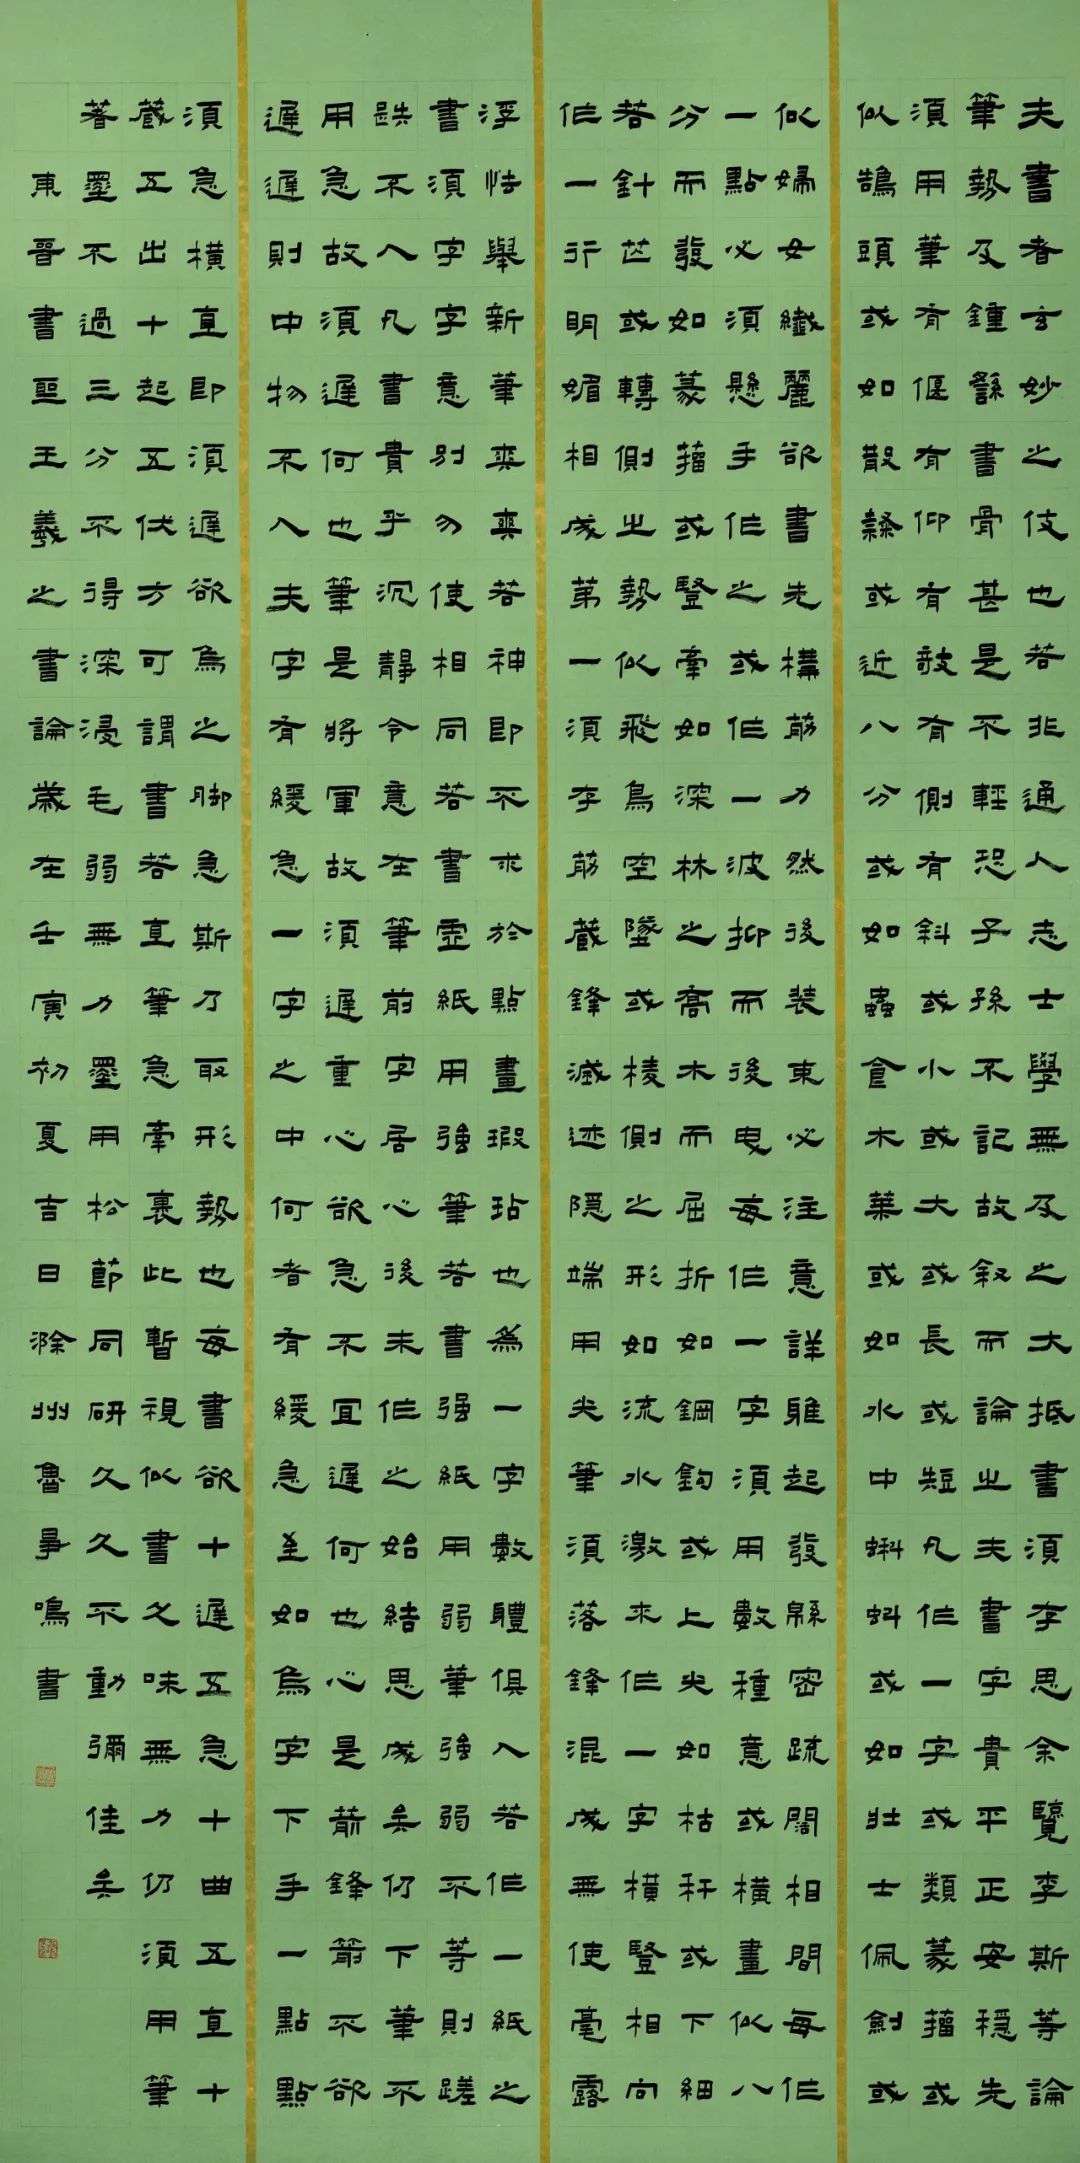 夫書者玄妙之伎也若非通人志士學無及之大抵書須存思余覽李斯等論
筆勢及鍾繇書骨甚是不輕恐子孫不記故叙而論之夫書字貴平正安穩先
須用筆有偃有仰有攲有側有斜或小或大或長或短凡作一字或類篆籀或
似鵠頭或如散隸或近八分或如蟲食木葉或如水中蝌蚪或如壯士佩劍或
似婦女纖麗欲書先構筋力然後裝束必注意詳雅起發綿密疏闊相間每作
一點必須懸手作之或作一波抑而後曳每作一字須用數種意或橫畫似八
分而發如篆籀或豎牽如深林之喬木而屈折如鋼鉤或上尖如枯秆或下細
若針芒或轉側之勢似飛鳥空墜或棱側之形如流水激來作一字橫豎相向
作一行明媚相成第一須存筋藏鋒滅迹隱端用尖筆須落鋒混成無使毫露
浮怯舉新筆爽爽若神即不求於點畫瑕玷也為一字數體俱入若作一紙之
書須字字意別勿使相同若書虛紙用強筆若書强紙用弱筆強弱不等則蹉
跌不入凡書貴乎沉靜令意在筆前字居心後未作之始結思成矣仍下筆不
用急故須遲何也筆是將軍故須遲重心欲急不宜遲何也心是箭鋒箭不欲
遲遲則中物不入夫字有緩急一字之中何者有緩急至如烏字下手一點點
須急橫直即須遲欲烏之脚急斯乃取形勢也每書欲十遲五急十曲五直十
藏五出十起五伏方可謂書若直筆急牽裹此暫視似書久味無力仍須用筆
著墨不過三分不得深浸毛弱無力墨用松節同研久久不動彌佳矣
東晉書聖王羲之書論歲在壬寅初夏吉日滁州魯爭鳴書